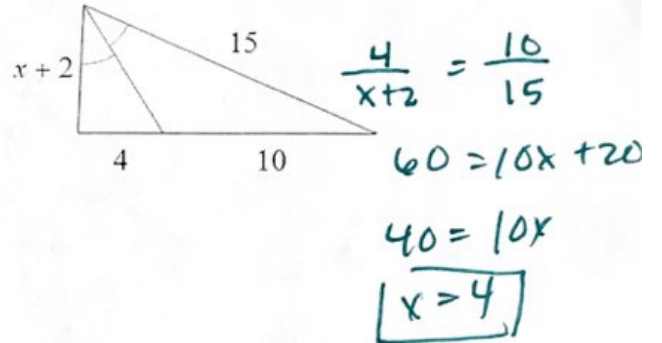 15
x + 2
4
10
4/(x+2) = 10/15
60 = 10x + 20
40 = 10x
x = 4